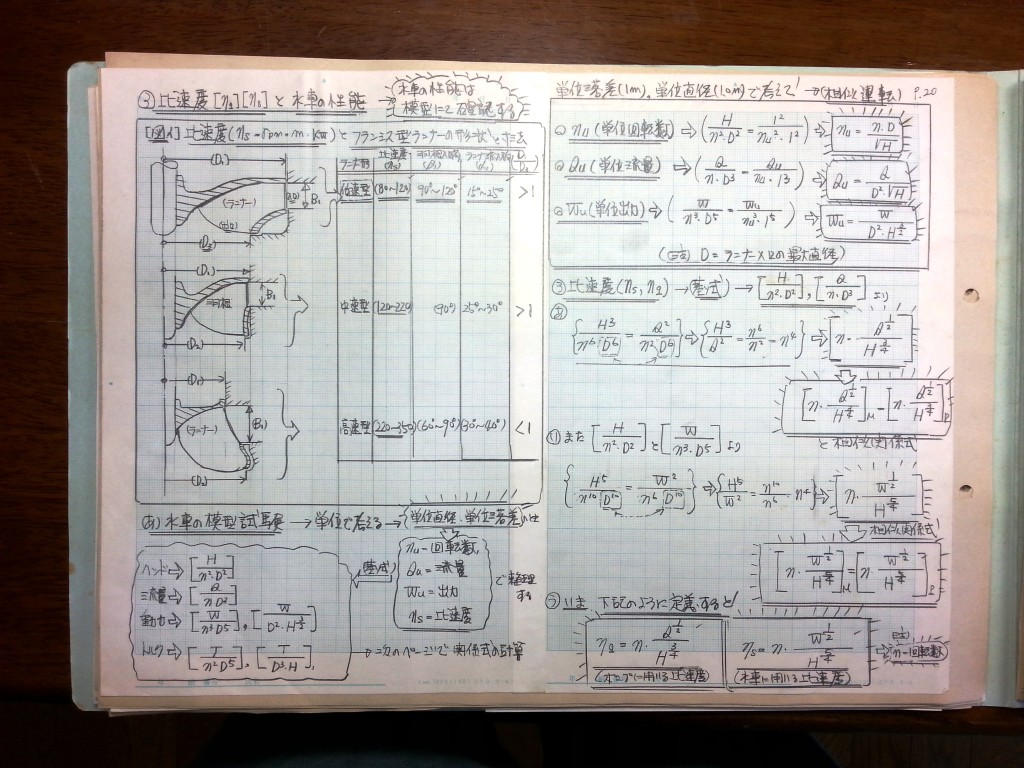 ③ 比速度[ηq][ηs]と水車の性能
水車の性能は
模型にて確認する
[図1] 比速度(ηs=rpm·m·kW)とフランシス型ランナーの形状
比速度
低速型 (80~120) 90°~120° 15°~25° >1
中速型 (120~220) (90°) 25°~30° >1
高速型 (220~350) (60°~90°) (30°~40°) <1
(D₁)
(ランナー)
(出口)
B₁
(D₂)
(D₁)
B₁
(D₂)
(D₁)
(ランナー)
(B₁)
(D₂)
(あ) 水車の模型試験 → 単位で考える → (単位直径、単位落差)
ヘッド⇒ [H/n²·D²]
流量⇒ [Q/nD³]
動力⇒ [W/n³D⁵], [W/D²·H^3/2]
トルク⇒ [T/n²D⁵], [T/D³·H],
(基式)
nu=回転数
Qu=流量
Wu=出力
ηs=比速度
で整理する
⇒次のページで関係式の計算
単位落差(1m)、単位直径(1.0m)で考えて! →(相似運転) P.20
nu (単位回転数) ⇒ (H/n²·D² = 1²/nu²·1²) ⇒ nu = n·D/√H
Qu (単位流量) → (Q/n·D³ = Qu/nu·1³) ⇒ Qu = Q/D²·√H
Wu (単位出力) ⇒ (W/n³·D⁵ = Wu/nu³·1⁵) ⇒ Wu = W/D²·H^3/2
D = ランナー入口の最大直径)
③ 比速度(ηs, ηq) → (基式) → [H/n²·D²], [Q/n·D³] より
(あ)
{H³/n⁶[D⁶] = Q²/n²[D⁶]} ⇒ {H³/Q² = n⁶/n² = n⁴} ⇒ [n·Q^1/2/H^3/4]
[n·Q^1/2/H^3/4]M = [n·Q^1/2/H^3/4]P
と相似関係式
(い) また [H/n²·D²] と [W/n³·D⁵] より
{H⁵/n¹⁰[D¹⁰] = W²/n⁶[D¹⁰]} ⇒ {H⁵/W² = n¹⁰/n⁶ = n⁴} ⇒ [n·W^1/2/H^5/4]
相似関係式!
[n·W^1/2/H^5/4]M = [n·W^1/2/H^5/4]P
(う) いま 下記のように定義すると!
ηq = n·Q^1/2/H^3/4
(ポンプに用いる比速度)
ηs = n·W^1/2/H^5/4
(水車に用いる比速度)
n=回転数